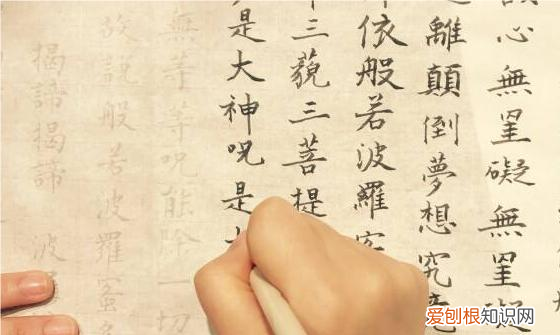 心無罣礙無罣礙
離顛倒夢想究竟
依般若波羅蜜
三藐三菩提
是大神呪是
無等等呪能除一切
故說般若波羅蜜多
揭諦揭諦 波
爱刨根知识网